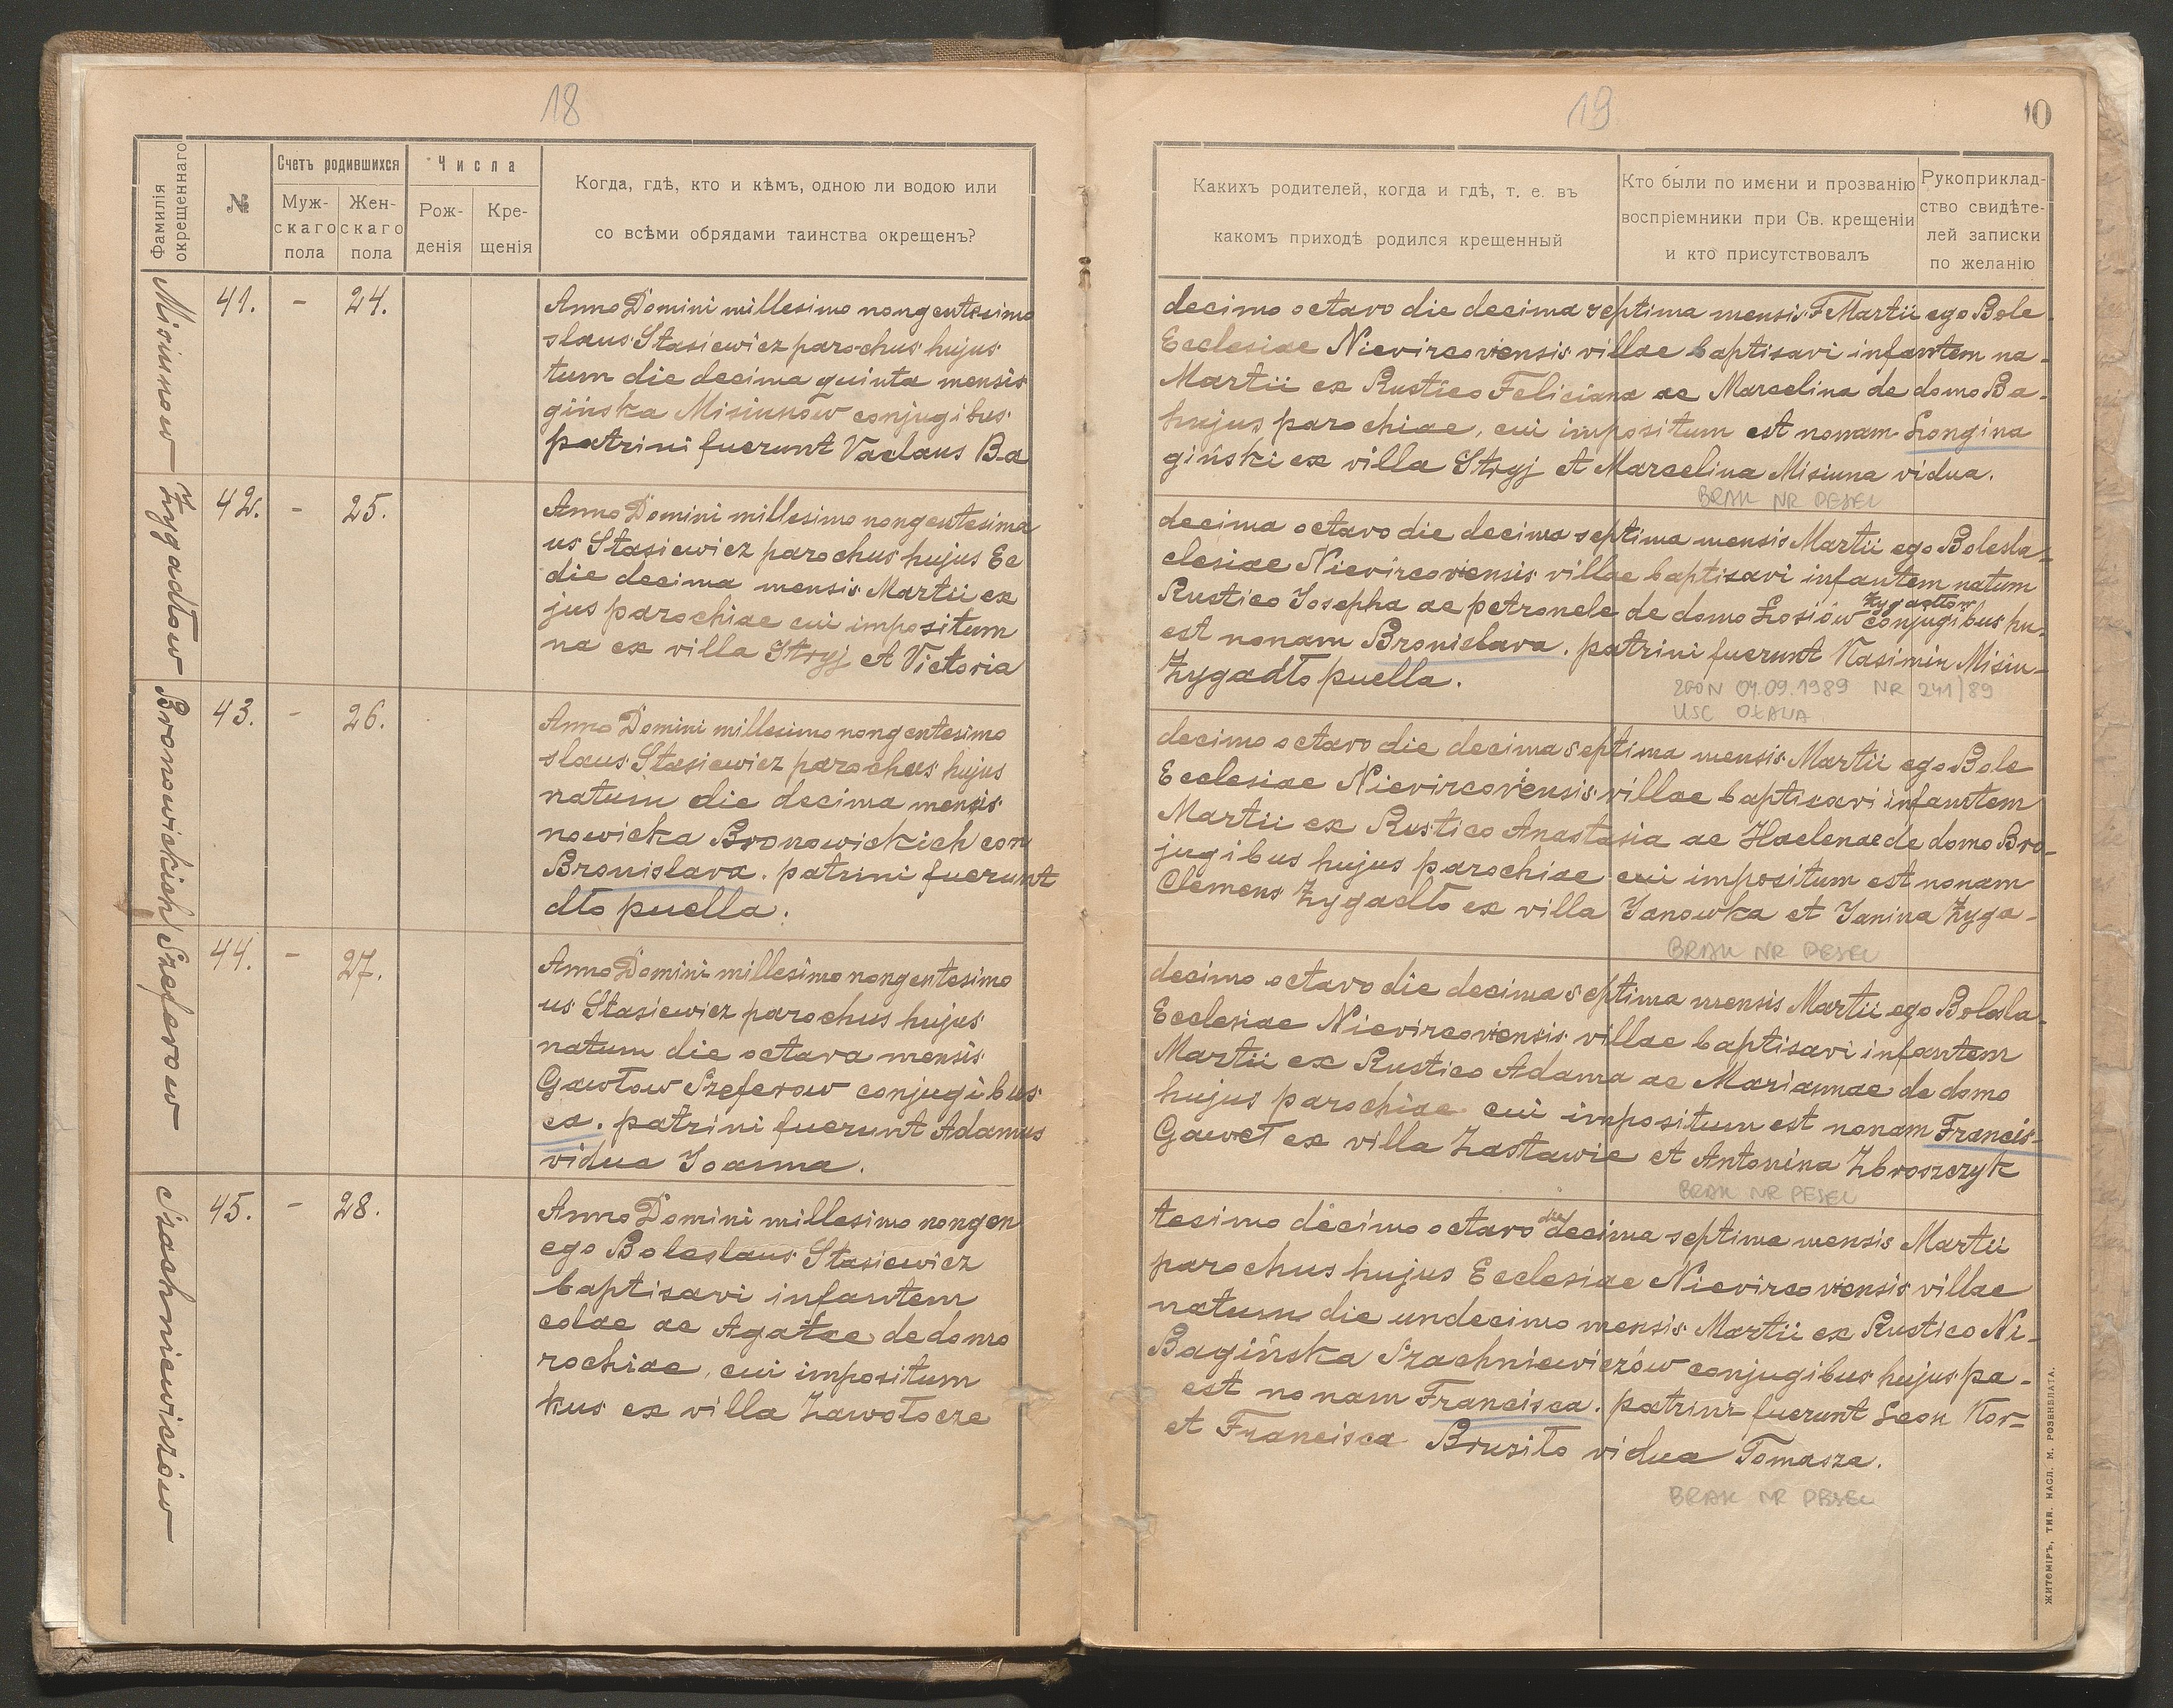 18
Фамилія окрещеннаго
№
Счетъ родившихся
Муж-скаго пола
Жен-скаго пола
Числа
Рож-денія
Кре-щенія
Когда, гдѣ, кто и кѣмъ, одною ли водою или
со всѣми обрядами таинства окрещенъ?
Misiunow
41. - 24.
Anno Domini millesimo nongentesimo
slaus Stasiewicz parochus hujus
tum die decima quinta mensis
gińska Misiunow conjugibus
patrini fuerunt Vaclaus Ba
Zygadłow
42. - 25.
Anno Domini millesimo nongentesima
us Stasiewicz parochus hujus Ec
die decima mensis Martii ex
jus parochiae cui impositum
na ex villa Stryj et Victoria
Bronowickich
43. - 26.
Anno Domini millesimo nongentesimo
slaus Stasiewicz parochus hujus
natum die decima mensis
nowicka Bronowickich con
Bronislava. patrini fuerunt
dło puella.
Szeferow
44. - 27.
Anno Domini millesimo nongentesimo
us Stasiewicz parochus hujus
natum die octava mensis
Gawłow Szeferow conjugibus
ca. patrini fuerunt Adamus
vidua Joanna.
Szachniewiczów
45. - 28.
Anno Domini millesimo nongen
ego Boleslaus Stasiewicz
baptisavi infantem
colae ac Agatae de domo
rochiae, cui impositum
kus ex villa Zawołocze
19
10
Какихъ родителей, когда и гдѣ, т. е. въ
какомъ приходѣ родился крещенный
Кто были по имени и прозванію
воспріемники при Св. крещеніи
и кто присутствовалъ
Рукоприклад-
ство свидѣте-
лей записки
по желанію
decimo octavo die decima septima mensis Martii ego Bole
Ecclesiae Nievircoviensis villae baptisavi infantem na-
Martii ex Rustico Feliciana ac Marcelina de domo Ba-
hujus parochiae, cui impositum est nonam Longina
giński ex villa Stryj et Marcelina Misiuna vidua.
BRAK NR PESEL
decima octavo die decima septima mensis Martii ego Bolesla-
clesiae Nievircoviensis villae baptisavi infantem natum
Zygadłow
Rustico Josepha ac petronele de domo Łosiów conjugibus hu-
est nonam Bronislava. patrini fuerunt Kasimir Misiu-
Zygadło puella.
ZGON 04.09.1989 NR 241/89
USC OŁAWA
decimo octavo die decima septima mensis Martii ego Bole
Ecclesiae Nievircoviensis villae baptisavi infantem
Martii ex Rustico Anastasia ac Haelenae de domo Bro-
jugibus hujus parochiae cui impositum est nonam
Clemens Zygadło ex villa Janowka et Janina Zyga-
BRAK NR PESEL
decimo octavo die decima septima mensis Martii ego Bolesla-
Ecclesiae Nievircoviensis villae baptisavi infantem
Martii ex Rustico Adama ac Mariannae de domo
hujus parochiae cui impositum est nonam Francis-
Gaweł ex villa Zastawie et Antonina Zbroszczyk
BRAK NR PESEL
die
tesimo decimo octavo decima septima mensis Martii
parochus hujus Ecclesiae Nievircoviensis villae
natum die undecimo mensis Martii ex Rustico Ni-
Bagińska Szachniewiczów conjugibus hujus pa-
est nonam Francisca. patrini fuerunt Leon Kor-
et Francisca Bruziło vidua Tomasza.
BRAK NR PESEL
ЖИТОМІРЪ, ТИП. НАСЛ. М. РОЗЕНБЛАТА.